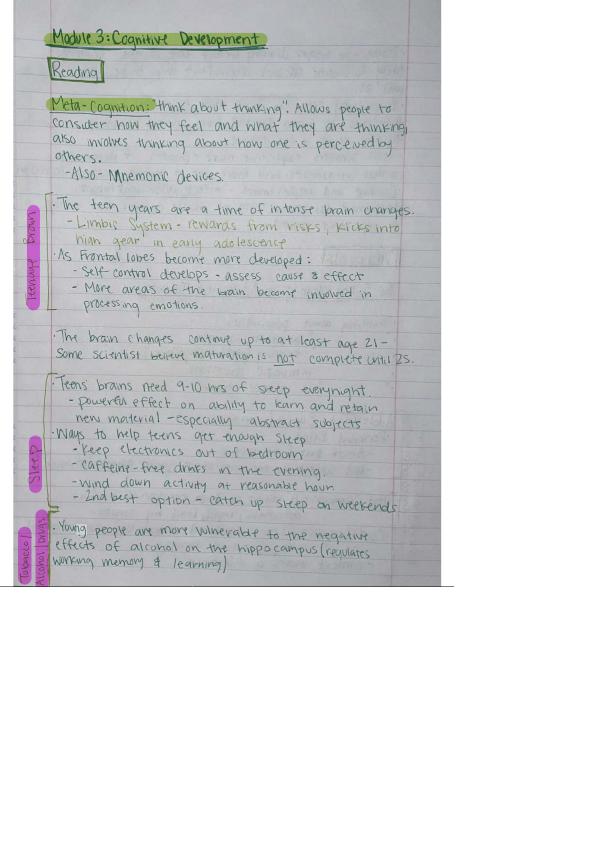 Module 3: Cognitive Development
Reading
Meta-Cognition: "think about thinking". Allows people to
consider how they feel and what they are thinking,
also involves thinking about how one is perceived by
others.
-Also- Mnemonic devices.
Teenage brain
· The teen years are a time of intense brain changes.
- Limbic System - rewards from risks; kicks into
high gear in early adolescence
· As Frontal lobes become more developed:
- Self-control develops - assess cause & effect
- More areas of the brain become involved in
processing emotions.
· The brain changes continue up to at least age 21-
Some scientist believe maturation is not complete until 25.
Sleep
· Teens' brains need 9-10 hrs of sleep everynight.
- powerful effect on ability to learn and retain
new material - especially abstract subjects
· Ways to help teens get enough sleep
- Keep electronics out of bedroom
- caffeine-free drinks in the evening.
- wind down activity at reasonable hour
- 2nd best option - catch up sleep on weekends
Tobacco/
Alcohol/Drugs
· Young people are more vulnerable to the negative
effects of alcohol on the hippocampus (regulates
working memory & learning)